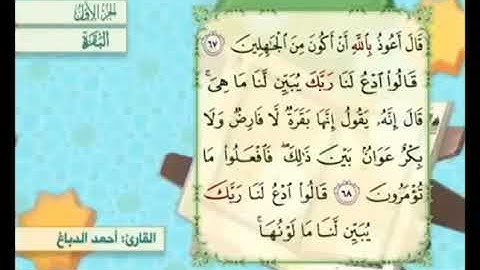 الجزء الأول
البقرة
قَالَ أَعُوذُ بِاللَّهِ أَنْ أَكُونَ مِنَ الْجَٰهِلِينَ ٦٧
قَالُوا۟ ادْعُ لَنَا رَبَّكَ يُبَيِّن لَّنَا مَا هِىَ ۚ
قَالَ إِنَّهُۥ يَقُولُ إِنَّهَا بَقَرَةٌ لَّا فَارِضٌ وَلَا
بِكْرٌ عَوَانٌۢ بَيْنَ ذَٰلِكَ ۖ فَافْعَلُوا۟ مَا
تُؤْمَرُونَ ٦٨ قَالُوا۟ ادْعُ لَنَا رَبَّكَ
يُبَيِّن لَّنَا مَا لَوْنُهَا ۚ
القارئ: أحمد الدباغ